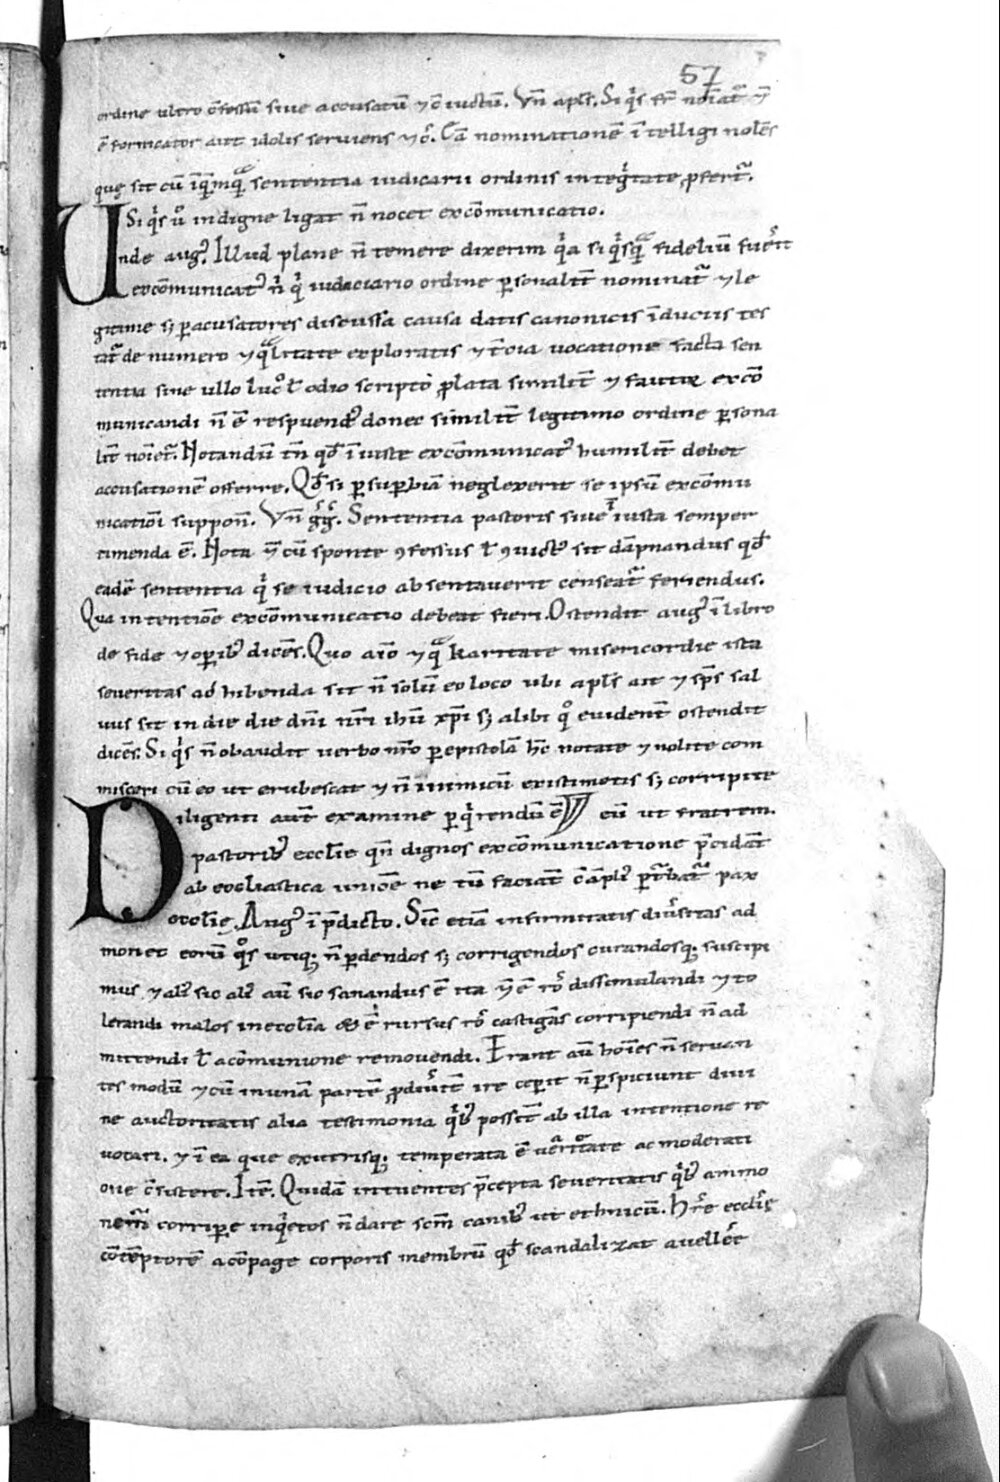 57
ordine ultro c̄fessū sive accusatū ⁊ c̄iuctū. Vn̄ apl̄s. Si q̇s fr̄ noīat᷑ ⁊
ē fornicator aut idolis serviens ⁊ c̄. Eā nominationē ītelligi nolēs
quę sit cū sententia iudicarii ordinis inteġtate ꝓfert᷑.
Si q̇s ů indigne ligat n̄ nocet excōmunicatio.
Unde aug᷒. Illud plane n̄ temere dixerim q̇a si q̇sq̄ fideliū fuerit
excōmunicat᷒ n̄ q̇ iudiciario ordine ꝑsonalit̄ nominat᷑ ⁊ le
gitime sꝫ ꝑ acusatores discussa causa datis canonicis īduciis tes
tat᷑ de numero ⁊ qͣlitate exploratis ⁊ vocatione facta sen
tentia sine ullo odio scripto ꝓlata similit̄ ⁊ excō
municandi n̄ ē respuend᷒ donec similit̄ legitimo ordine ꝑsona
lit̄ noīet᷑. Notandū tn̄ qd̄ īiuste excōmunicat᷒ humilit̄ debet
acusationē offerre. Qd̄ si ꝑ suꝑbiā neglexerit se ipsū excōmu
nicatiōi suppon̄. Vn̄ gḡ. Sententia pastoris sive īiusta semper
timenda ē. Nota cū sponte ꝯfessus l̄ ꝯvict᷒ sit dāpnandus qd̄
eadē sententia q̇ se iudicio absentaverit censeat᷑ feriendus.
Qua intentiōe excōmunicatio debeat fieri. Ostendit aug᷒ ī libro
de fide ⁊ oꝑib᷒ dicēs. Quo aīo ⁊ qͣ karitate misericordie ista
severitas adhibenda sit n̄ solū eo loco ubi apl̄s ait ⁊ sp̄s sal
vus sit in die die dn̄i nr̄i ihū xp̄i sꝫ alibi qͦ evident̄ ostendit
dicēs. Si q̇s n̄ obaudit verbo nr̄o ꝑ epistolā hc̄ notate ⁊ nolite com
misceri cū eo ut erubescat ⁊ n̄ inimicū existimetis sꝫ corripite
Diligenti aut̄ examine ꝑq̇rendū ē eū ut fratrem.
pastorib᷒ eccl̄ie qn̄ dignos excōmunicatione p̄cidāt
ab eccliastica uniōe ne tū faciāt ꝑt᷑bat᷑ pax
ecclīę. Aug᷒ ī p̄dicto. Sic̄ etiā infirmitatis div̄sitas ad
monet eorū qͦs utiq; n̄ ꝑdendos sꝫ corrigendos curandosq; suscipi
mus ⁊ ali᷒ sic ali᷒ aū sic sanandus ē ita ē rō dissimulandi ⁊ to
lerandi malos in ecclīa & ē rursus rō castigās corripiendi n̄ ad
mittendi l̄ a cōmunione removendi. Errant aū hoīes n̄ servan
tes modū ⁊ cū in unā partē ire ceperit n̄ ꝑspiciunt divi
ne auctoritatis alia testimonia q̇b᷒ possīt ab illa intentione re
vocari. ⁊ ī ea que ex utrisq; temperata ē veritate ac moderati
one cōsistere. Itē. Quidā intuentes p̄cepta severitatis q̇b᷒ ammo
nem᷑ corriꝑe inq̇etos n̄ dare sc̄m canib᷒ ut ethnicū. ecclīę
cōtēptorē a cōpage corporis membrū qd̄ scandalizat avellēt